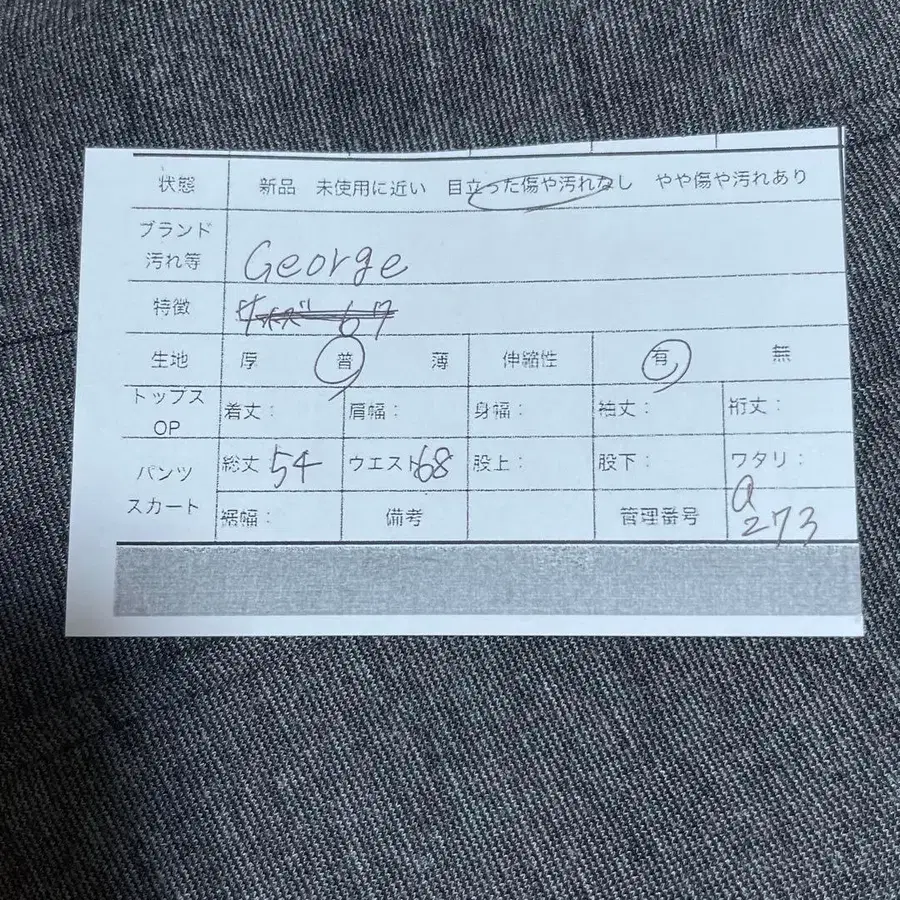 状態 新品 未使用に近い 目立った傷や汚れなし やや傷や汚れあり
ブランド
汚れ等 George
特徴
生地 厚 普 薄 伸縮性 有 無
トップス
OP 着丈: 肩幅: 身幅: 袖丈: 裄丈:
パンツ
スカート 総丈 54 ウエスト 68 股上: 股下: ワタリ:
裾幅: 備考 管理番号 a
273